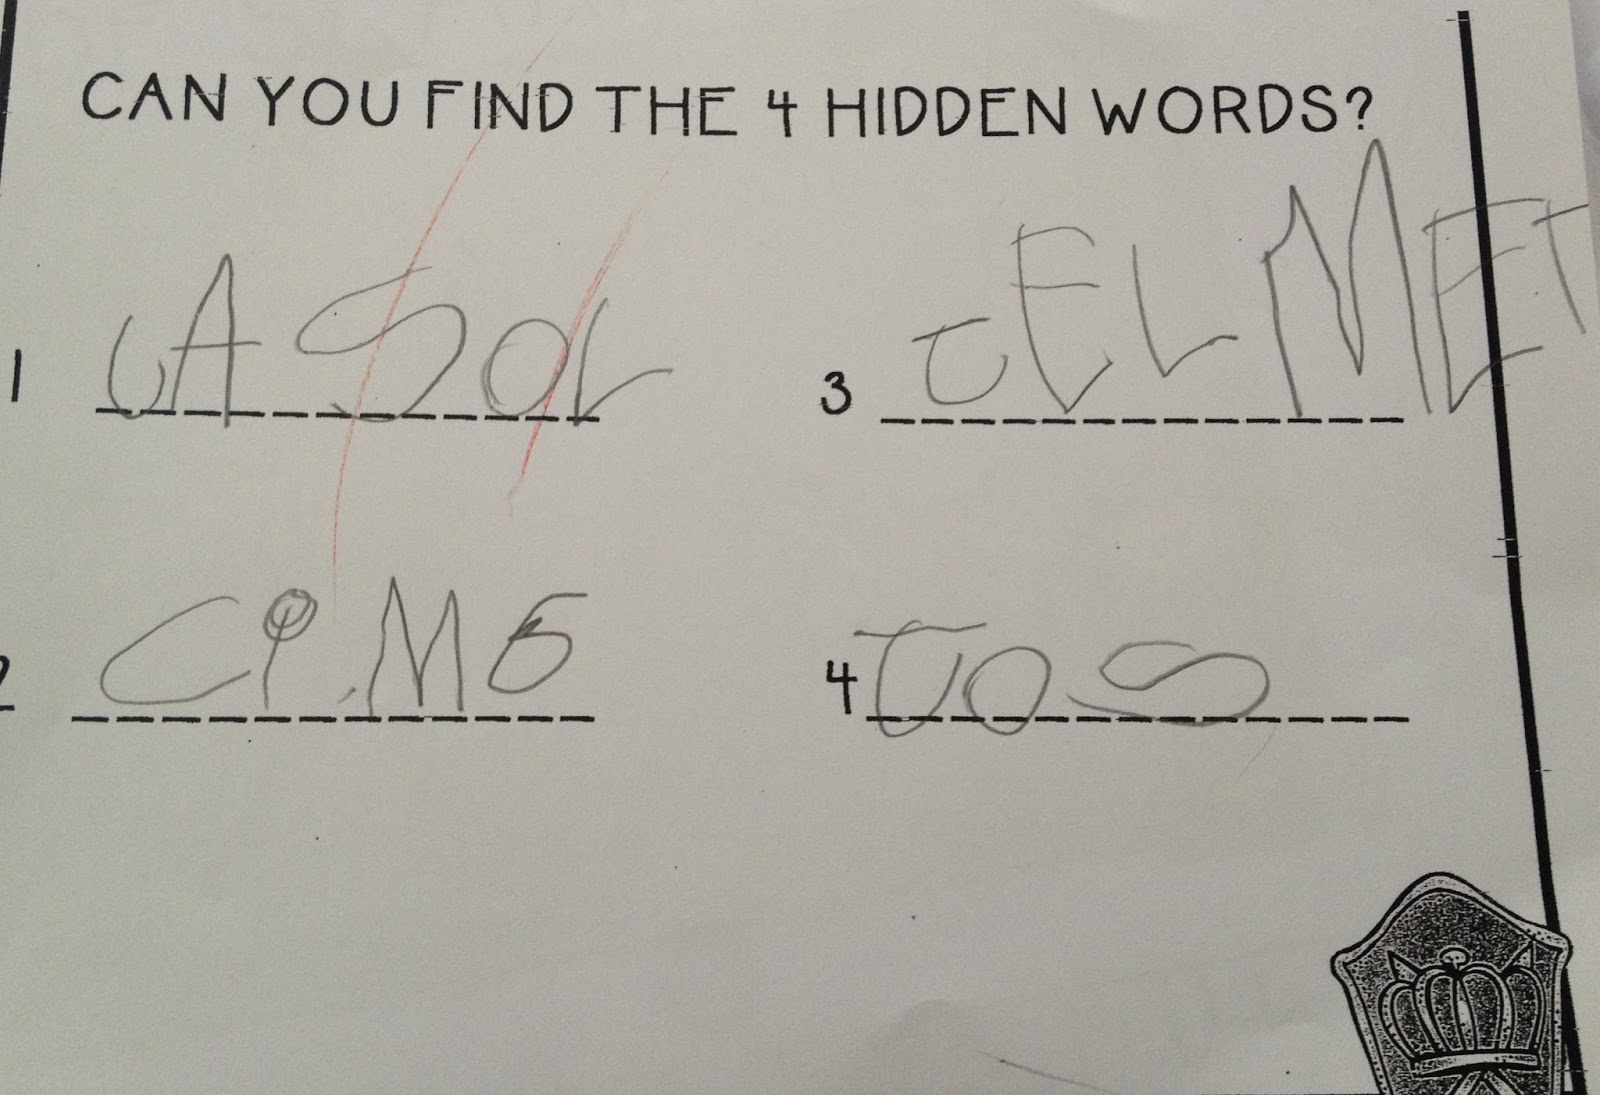 CAN YOU FIND THE 4 HIDDEN WORDS?
1 CASOL
3 tELMET
2
4